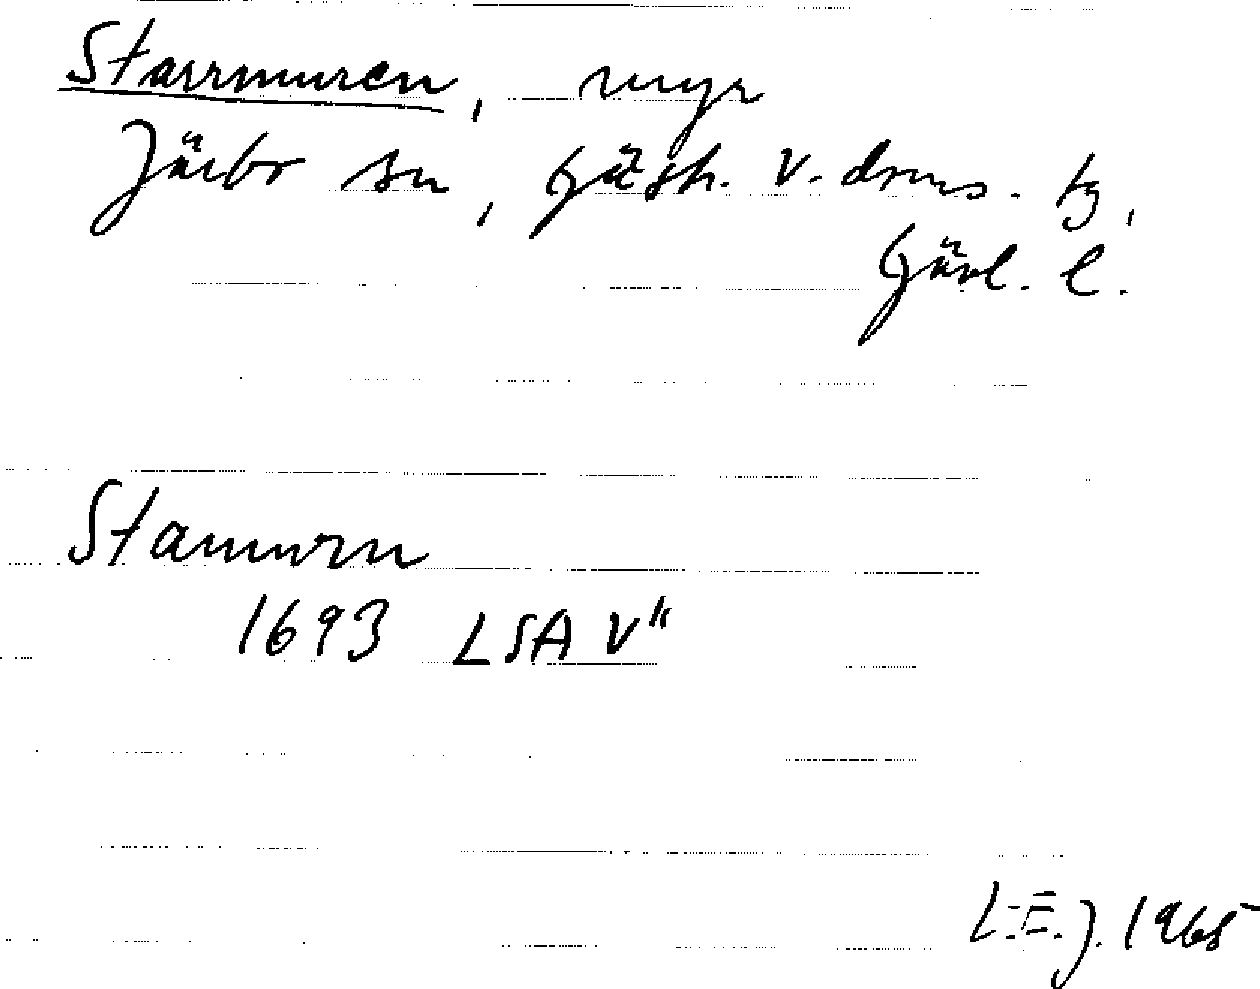 Starrmuren, myr
Järbo sn, Gästr. v. doms. tg,
Gävl. l.
Stamurn
1693 LSA V"
L.E.J. 1965